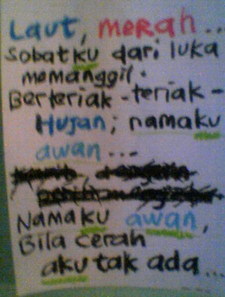 Laut, merah...
Sobatku dari luka
memanggil.
Berteriak-teriak-
Hujan; namaku
awan...
Namaku awan,
Bila cerah
aku tak ada...